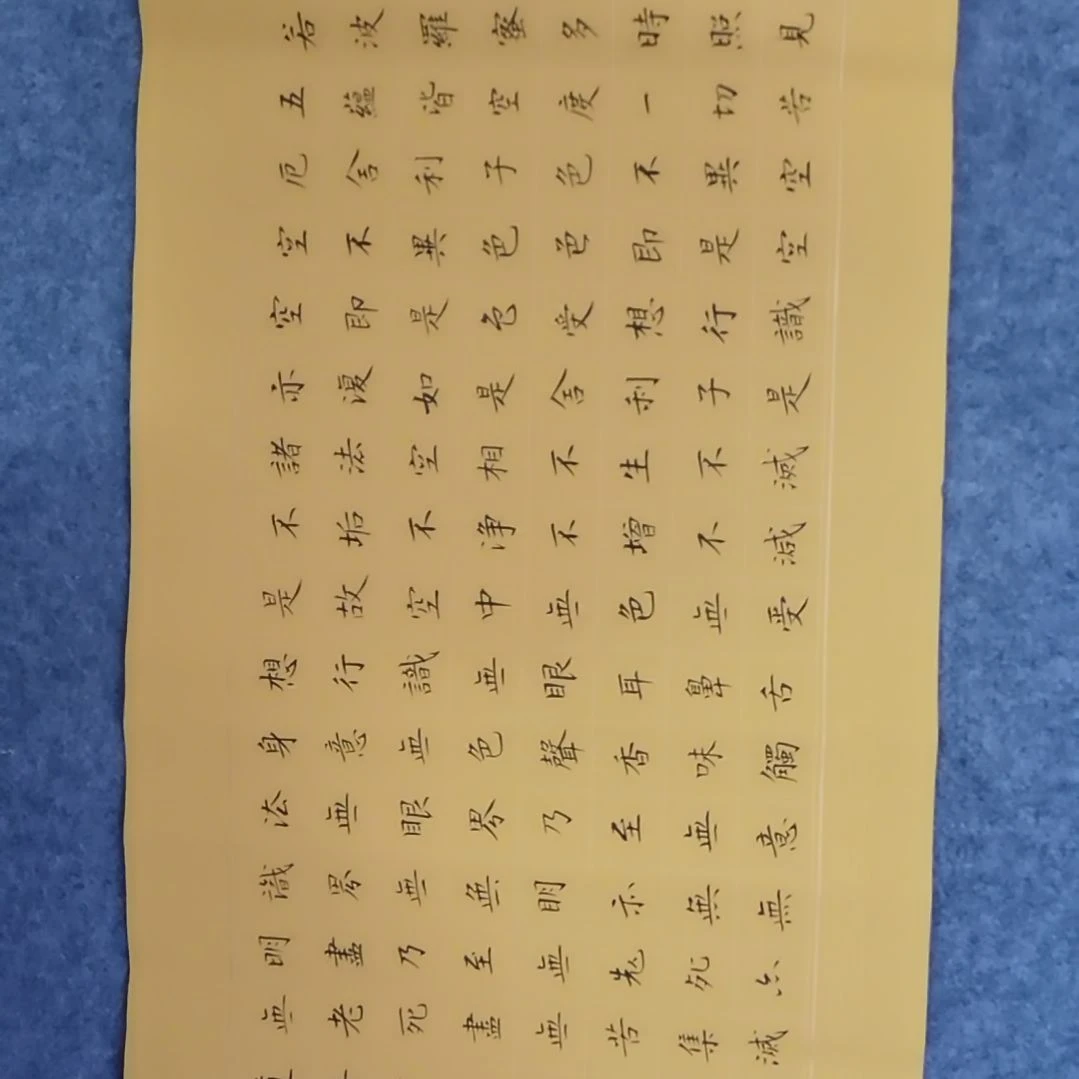 若波羅蜜多時照見
五蘊皆空度一切苦
厄舍利子色不異空
空不異色色即是空
空即是色受想行識
亦復如是舍利子是
諸法空相不生不滅
不垢不淨不增不減
是故空中無色無受
想行識無眼耳鼻舌
身意無色聲香味觸
法無眼界乃至無意
識界無無明亦無無
明盡乃至無老死亦
無老死盡無苦集滅